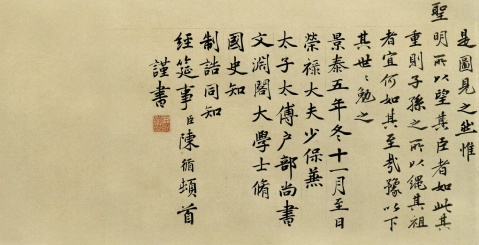 是圖見之然惟
聖明所以望其臣者如此其
重則子孫之所以繩其祖
者宜何如其至哉豫以下
其世〻勉之
景泰五年冬十一月至日
榮祿大夫少保兼
太子太傅户部尚書
文淵閣大學士脩
國史知
制誥同知
經筵事臣陳循頓首
謹書